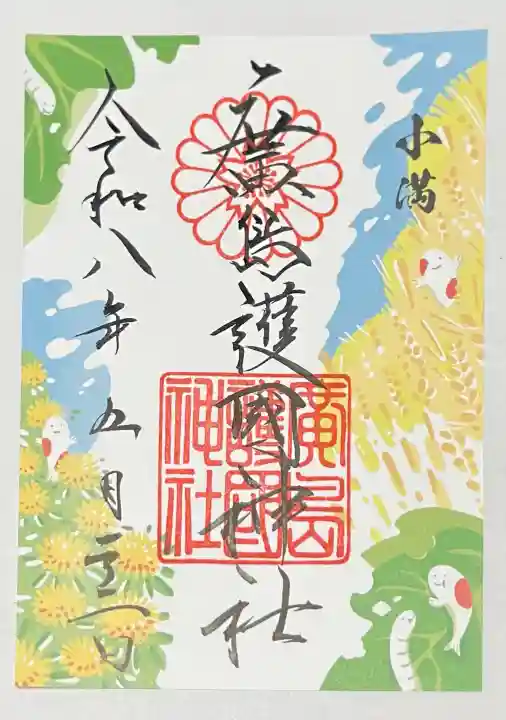 小満
廣島護國神社
令和八年五月二十一日
廣島
護國
神社